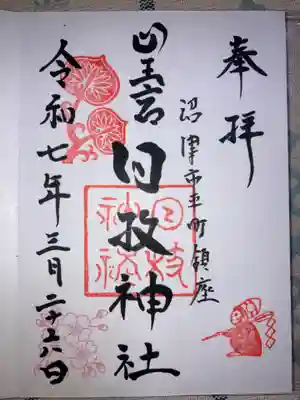 奉拝
沼津市平町鎮座
山王宮
日枝神社
日枝
神社
令和七年三月二十八日